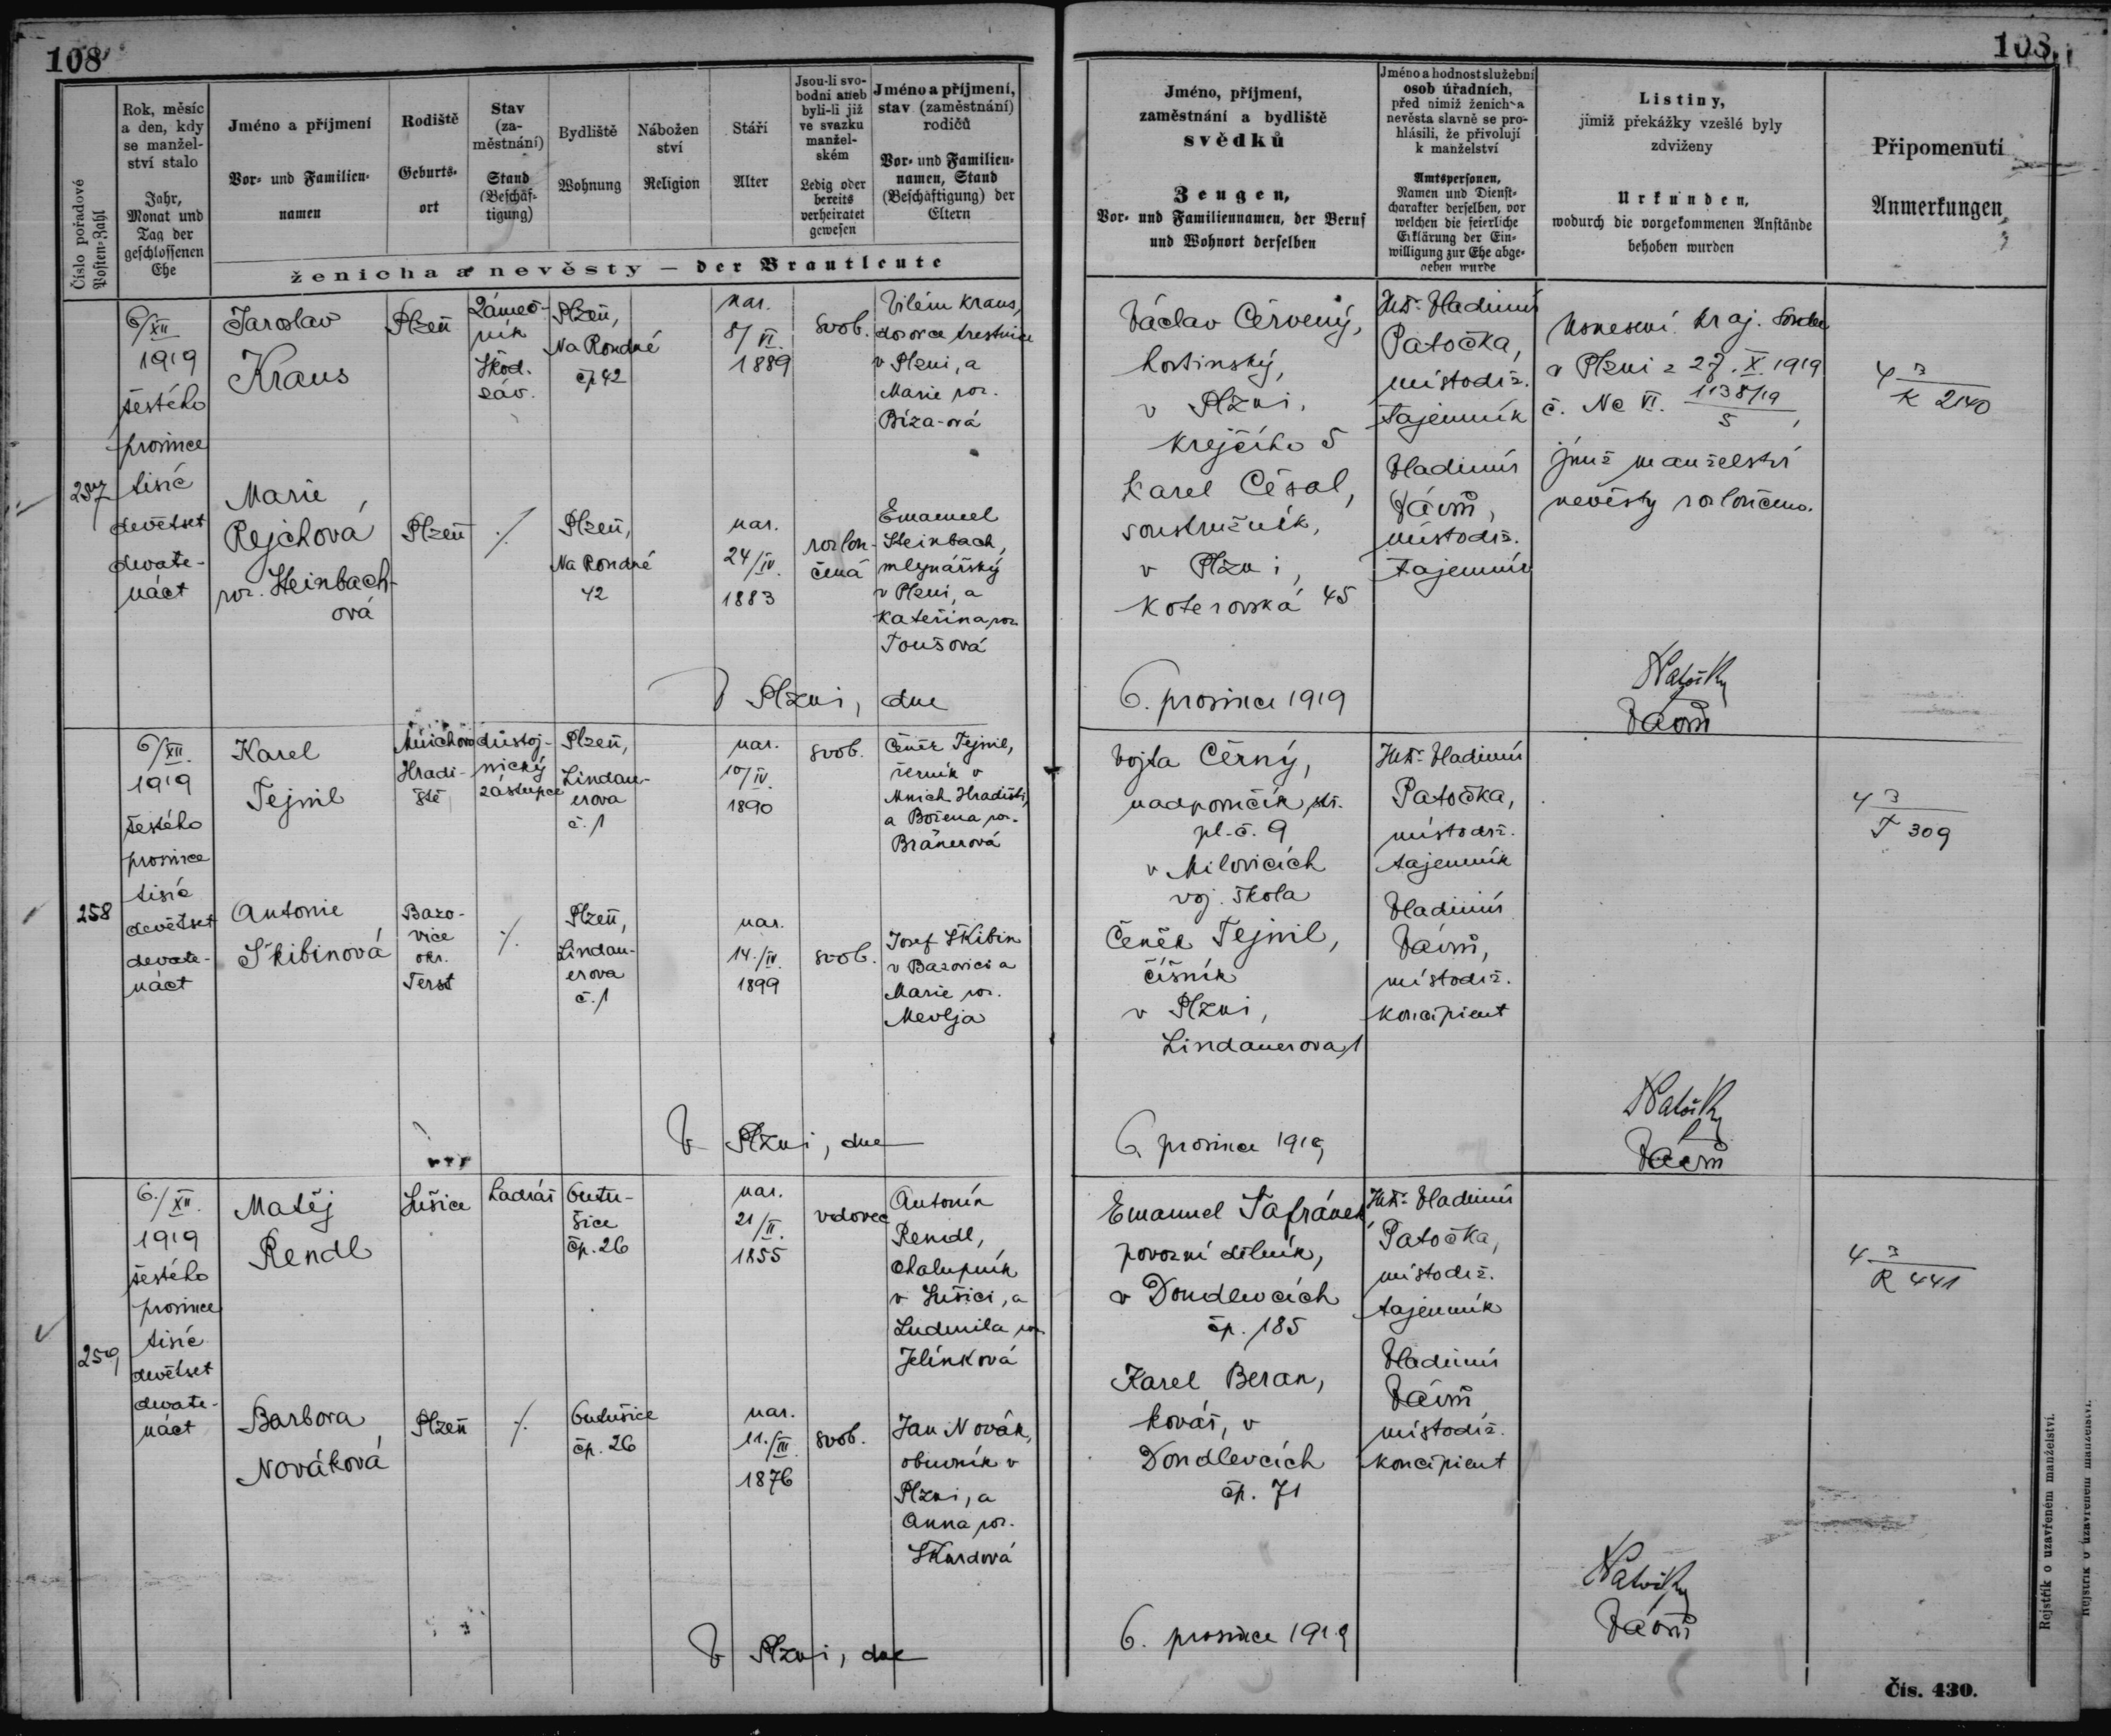 108
108
Číslo pořadové
Posten-Zahl
Rok, měsíc
a den, kdy
se manžel-
ství stalo
Jahr,
Monat und
Tag der
geschlossenen
Ehe
Jméno a příjmení
Vor- und Familien-
namen
Rodiště
Geburts-
ort
Stav
(za-
městnání)
Stand
(Beschäf-
tigung)
Bydliště
Wohnung
Nábožen
ství
Religion
Stáří
Alter
Jsou-li svo-
bodni aneb
byli-li již
ve svazku
manžel-
ském
Ledig oder
bereits
verheiratet
gewesen
Jméno a příjmení,
stav (zaměstnání)
rodičů
Vor- und Familien-
namen, Stand
(Beschäftigung) der
Eltern
ženicha a nevěsty — der Brautleute
Jméno, příjmení,
zaměstnání a bydliště
svědků
Zeugen,
Vor- und Familiennamen, der Beruf
und Wohnort derselben
Jméno a hodnost služební
osob úřadních,
před nimiž ženich a
nevěsta slavně se pro-
hlásili, že přivolují
k manželství
Amtspersonen,
Namen und Dienst-
charakter derselben, vor
welchen die feierliche
Erklärung der Ein-
willigung zur Ehe abge-
geben wurde
Listiny,
jimiž překážky vzešlé byly
zdviženy
Urkunden,
wodurch die vorgekommenen Anstände
behoben wurden
Připomenutí
Anmerkungen
257
6/XII
1919
šestého
prosince
tisíc
devětset
devate-
náct
Jaroslav
Kraus
Plzeň
Zámeč-
ník
Škod.
záv.
Plzeň,
Na Rondné
čp 42
nar.
8/VI.
1889
svob.
Vilém Kraus,
dozorce trestnice
v Plzni, a
Marie roz.
Bíza-ová
Marie
Rejchová,
roz. Steinbach-
ová
Plzeň
./.
Plzeň,
Na Rondné
42
nar.
24/IV.
1883
rozlou-
čená
Emanuel
Steinbach,
mlynářský
v Plzni, a
Kateřina roz.
Toušová
Václav Červený,
hostinský,
v Plzni,
Krejčího 5
Karel Césal,
soustružník,
v Plzni,
Koterovská 45
JUDr. Vladimír
Patočka,
místodrž.
tajemník
Vladimír
místodrž.
tajemník
Usnesení kraj. soudu
v Plzni z 27. X. 1919
č. Nc VI. 1138/19
5,
jímž manželství
nevěsty rozloučeno.
4 3
K 2140
V Plzni, dne
6. prosince 1919
258
6/XII.
1919
šestého
prosince
tisíc
devětset
devate-
náct
Karel
Tejnil
Mnichovo
Hradi-
ště
důstoj-
nický
zástupce
Plzeň,
Lindau-
erova
č. 1
nar.
10/IV.
1890
svob.
Čeněk Tejnil,
řezník v
Mnich. Hradišti,
a Božena roz.
Bränerová
Antonie
Škibinová
Bazo-
vice
okr.
Terst
./.
Plzeň,
Lindau-
erova
č. 1
nar.
14./IV.
1899
svob.
Josef Škibin
v Bazovici a
Marie roz.
Mevlja
Vojta Černý,
nadporučík stř.
pl. č. 9
v Milovicích
voj. škola
Čeněk Tejnil,
číšník
v Plzni,
Lindauerova 1
JUDr. Vladimír
Patočka,
místodrž.
tajemník
Vladimír
místodrž.
koncipient
4 3
T 309
V Plzni, dne
6. prosince 1919
259
6./XII.
1919
šestého
prosince
tisíc
devětset
devate-
náct
Matěj
Rendl
Sušice
ladráš
čp. 26
nar.
21/II.
1855
vdovec
Antonín
Rendl,
chalupník
v Sušici, a
Ludmila roz.
Jelínková
Barbora
Nováková
Plzeň
./.
čp. 26
nar.
11./III.
1876
svob.
Jan Novák,
obuvník v
Plzni, a
Anna roz.
Škardová
Emanuel Šafránek
povozní dělník,
v Doudlevcích
čp. 185
Karel Beran,
kovář, v
Doudlevcích
čp. 71
JUDr. Vladimír
Patočka,
místodrž.
tajemník
Vladimír
místodrž.
koncipient
4 3
R 441
V Plzni, dne
6. prosince 1919
Rejstřík o uzavřeném manželství.
Rejstřík o uzavřeném manželství.
Čís. 430.